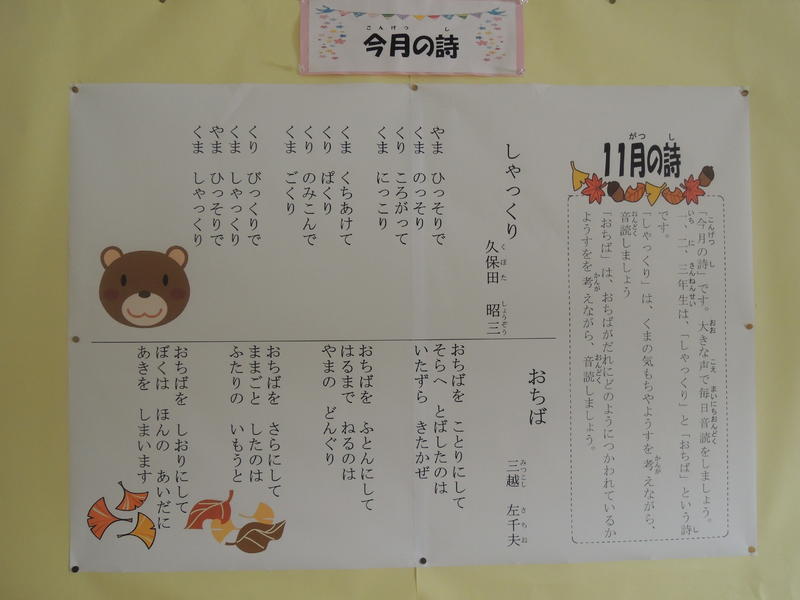 今月の詩
11月の詩
「今月の詩」です。大きな声で毎日音読をしましょう。
一、二、三年生は、「しゃっくり」と「おちば」という詩
です。
「しゃっくり」は、くまの気もちやようすを考えながら、
音読しましょう
「おちば」は、おちばがだれにどのようにつかわれているか
ようすをを考えながら、音読しましょう。
しゃっくり
久保田 昭三
やま ひっそりで
くま のっそり
くり ころがって
くま にっこり
くま くちあけて
くり ぱくり
くり のみこんで
くま ごくり
くり びっくりで
くま しゃっくり
やま ひっそりで
くま しゃっくり
おちば
三越 左千夫
おちばを ことりにして
そらへ とばしたのは
いたずら きたかぜ
おちばを ふとんにして
はるまで ねるのは
やまの どんぐり
おちばを さらにして
ままごと したのは
ふたりの いもうと
おちばを しおりにして
ぼくは ほんの あいだに
あきを しまいます